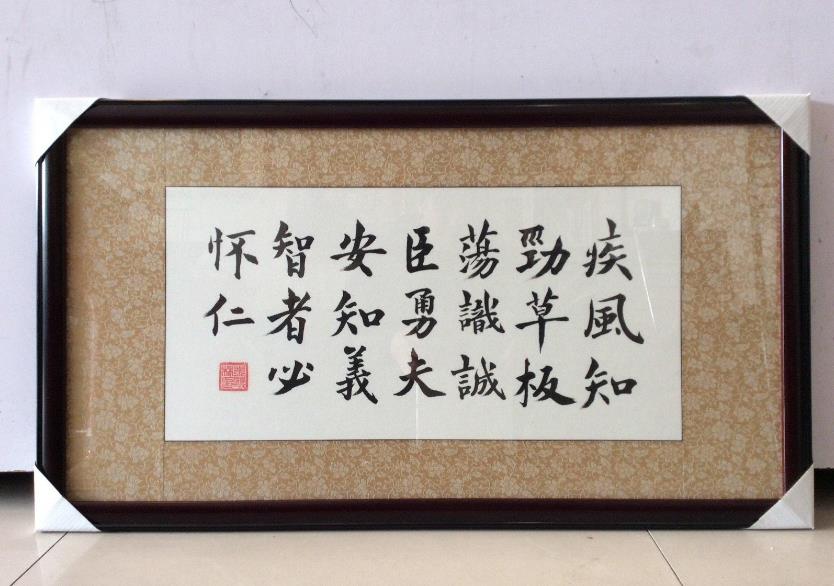 疾風知
勁草板
蕩識誠
臣勇夫
安知義
智者必
怀仁